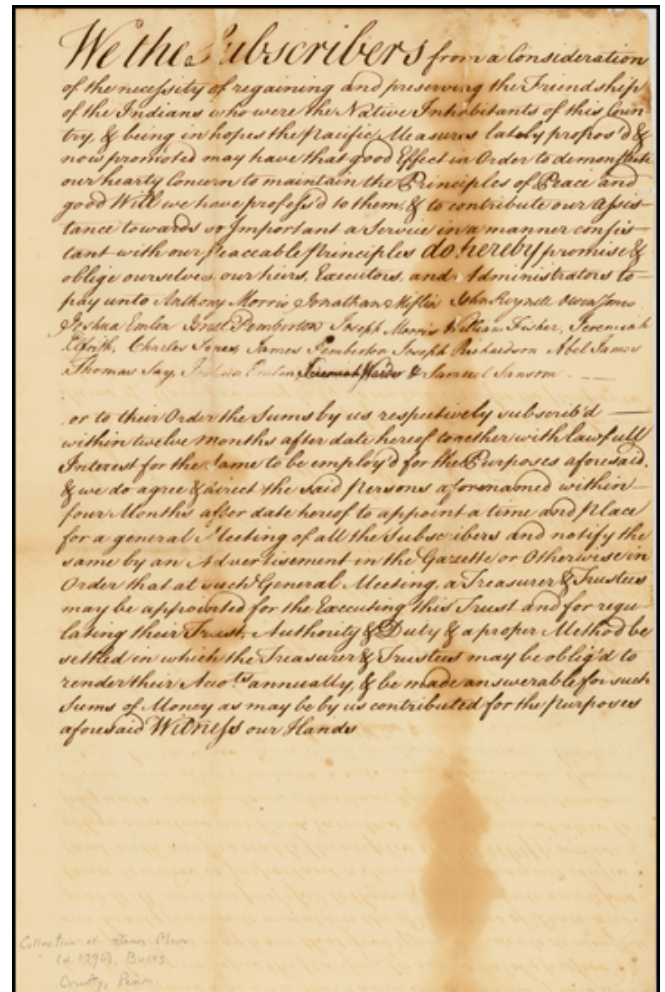 We the Subscribers from a Consideration
of the necessity of regaining and preserving the Friendship
of the Indians who were the Native Inhabitants of this Coun-
try, & being in hopes the pacific Measures lately propos'd &
now promoted may have that good Effect in Order to demonstrate
our hearty Concern to maintain the Principles of Peace and
good Will we have profess'd to them, & to contribute our Assis-
tance towards so Important a Service in a manner consis-
tant with our peaceable Principles do hereby promise &
oblige ourselves, our heirs, Executors, and Administrators to
pay unto Anthony Morris Jonathan Mifflin John Reynell Owen Jones
Joshua Emlen Isreel Pemberton Joseph Morris William Fisher, Jeremiah
Elfrith, Charles Jones James Pemberton Joseph Richardson Abel James
Thomas Say, Joshua Emlen, Jeremiah Warder & Samuel Sansom
or to their Order the Sums by us respectively subscrib'd
within twelve Months after date hereof together with lawfull
Interest for the same to be employ'd for the Purposes aforesaid.
& we do agree & direct the said Persons aforenamed within
four Months after date hereof to appoint a time and Place
for a general Meeting of all the Subscribers and notify the
same by an Advertisement in the Gazette or Otherwise in
Order that at such General Meeting, a Treasurer & Trustees
may be appointed for the Executing this Trust and for regu-
lating their Trust, Authority & Duty & a proper Method be
settled in which the Treasurer & Trustees may be oblig'd to
render their Acco.ts annually, & be made answerable for such
Sums of Money as may be by us contributed for the purposes
aforesaid Witness our Hands
Collection of James Moon
(d. 1796), Bucks
County, Penn.